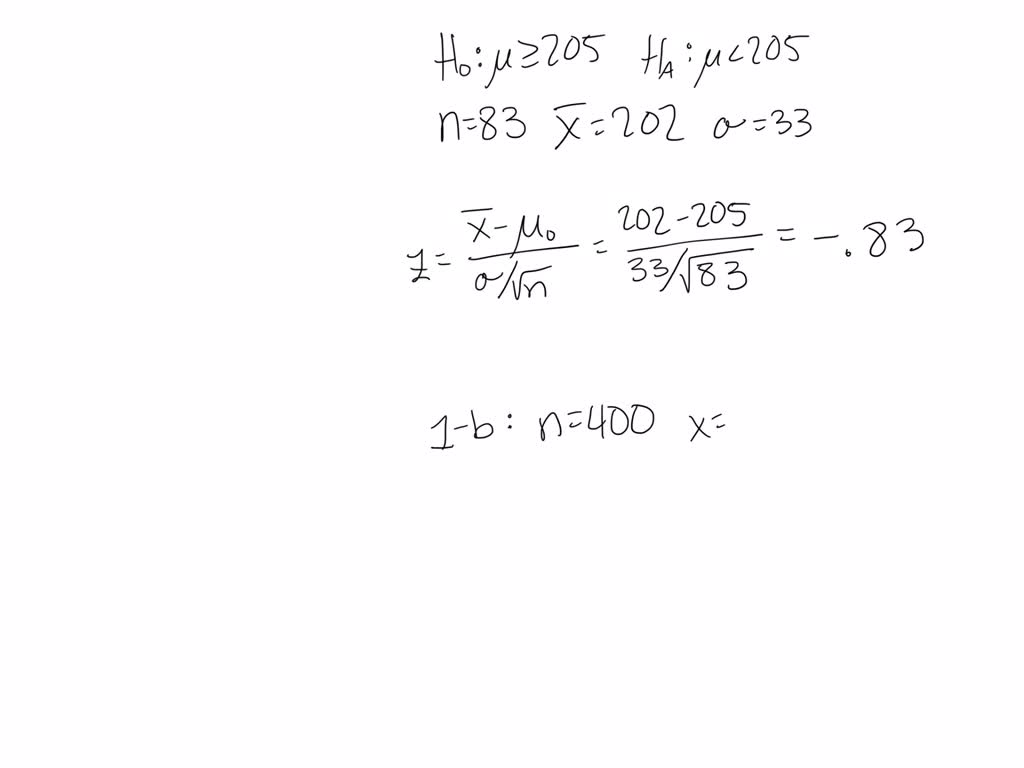 H₀: μ≥205 Hₐ: μ<205
n=83 x̄=202 σ=33
z= (x̄-μ₀)/(σ/√n) = (202-205)/(33/√83) = -.83
1-b: n=400 x=